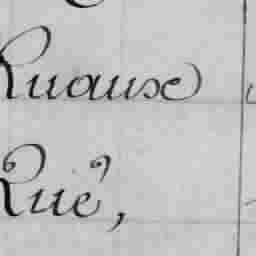 Ruause
Rué,